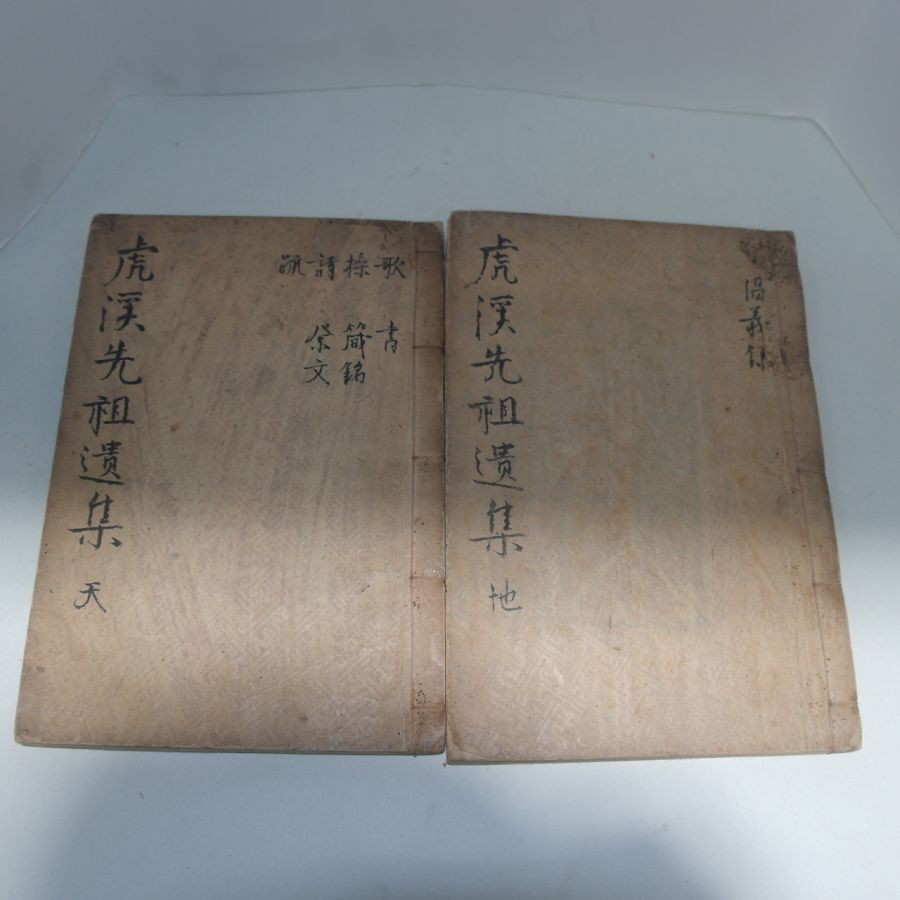 虎溪先祖遺集 天
歌 書
操 箴銘
詩 祭文
疏
虎溪先祖遺集 地
倡義錄